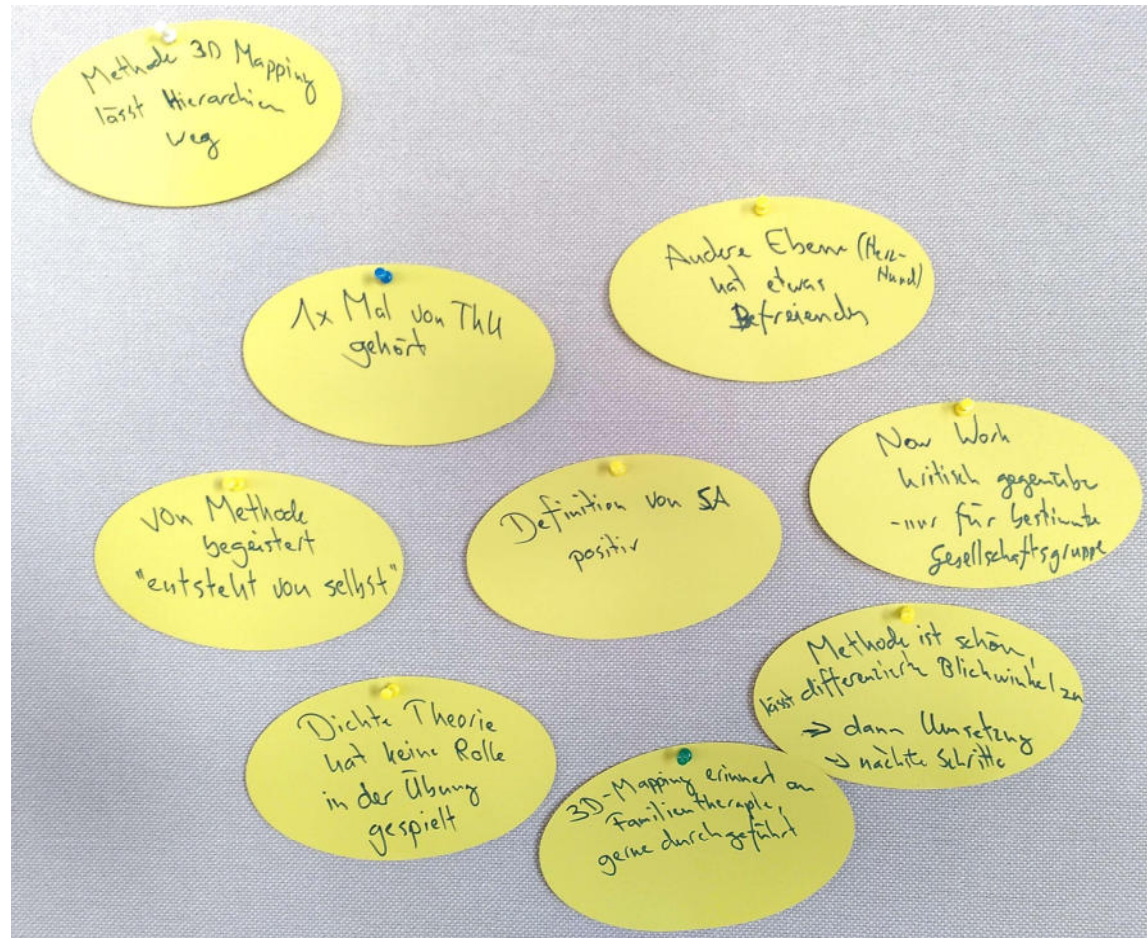 Methode 3D Mapping
lässt Hierarchien
weg
Andere Ebene (Herz-
Hand)
hat etwas
Befreiendes
1x Mal von ThU
gehört
New Work
kritisch gegenüber
-nur für bestimmte
Gesellschaftsgruppe
Von Methode
begeistert
"entsteht von selbst"
Definition von SA
positiv
Methode ist schön,
lässt differenzierte Blickwinkel zu
→ dann Umsetzung
→ nächste Schritte
Dichte Theorie
hat keine Rolle
in der Übung
gespielt
3D-Mapping erinnert an
Familientherapie,
gerne durchgeführt